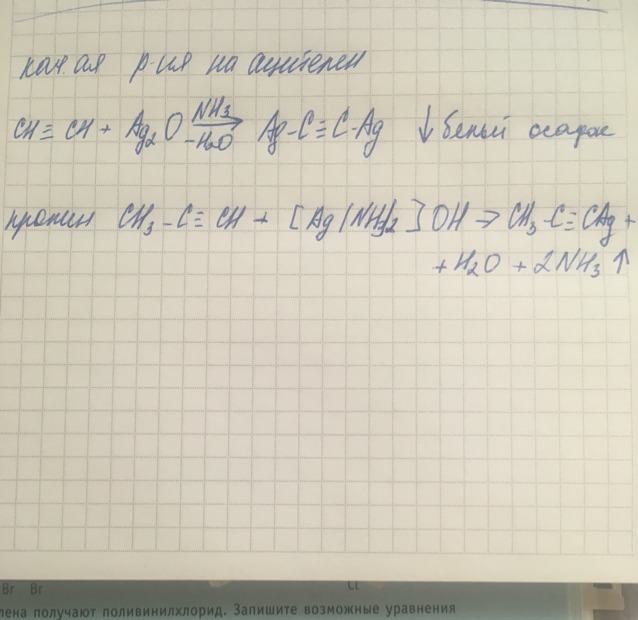 кач. ая р-ия на ацетилен
CH≡CH + Ag₂O NH₃ → -H₂O Ag-C≡C-Ag ↓ белый осадок
пропин CH₃-C≡CH + [Ag(NH₃)₂]OH → CH₃-C≡CAg +
+ H₂O + 2NH₃↑
Br Br Cl
лена получают поливинилхлорид. Запишите возможные уравнения